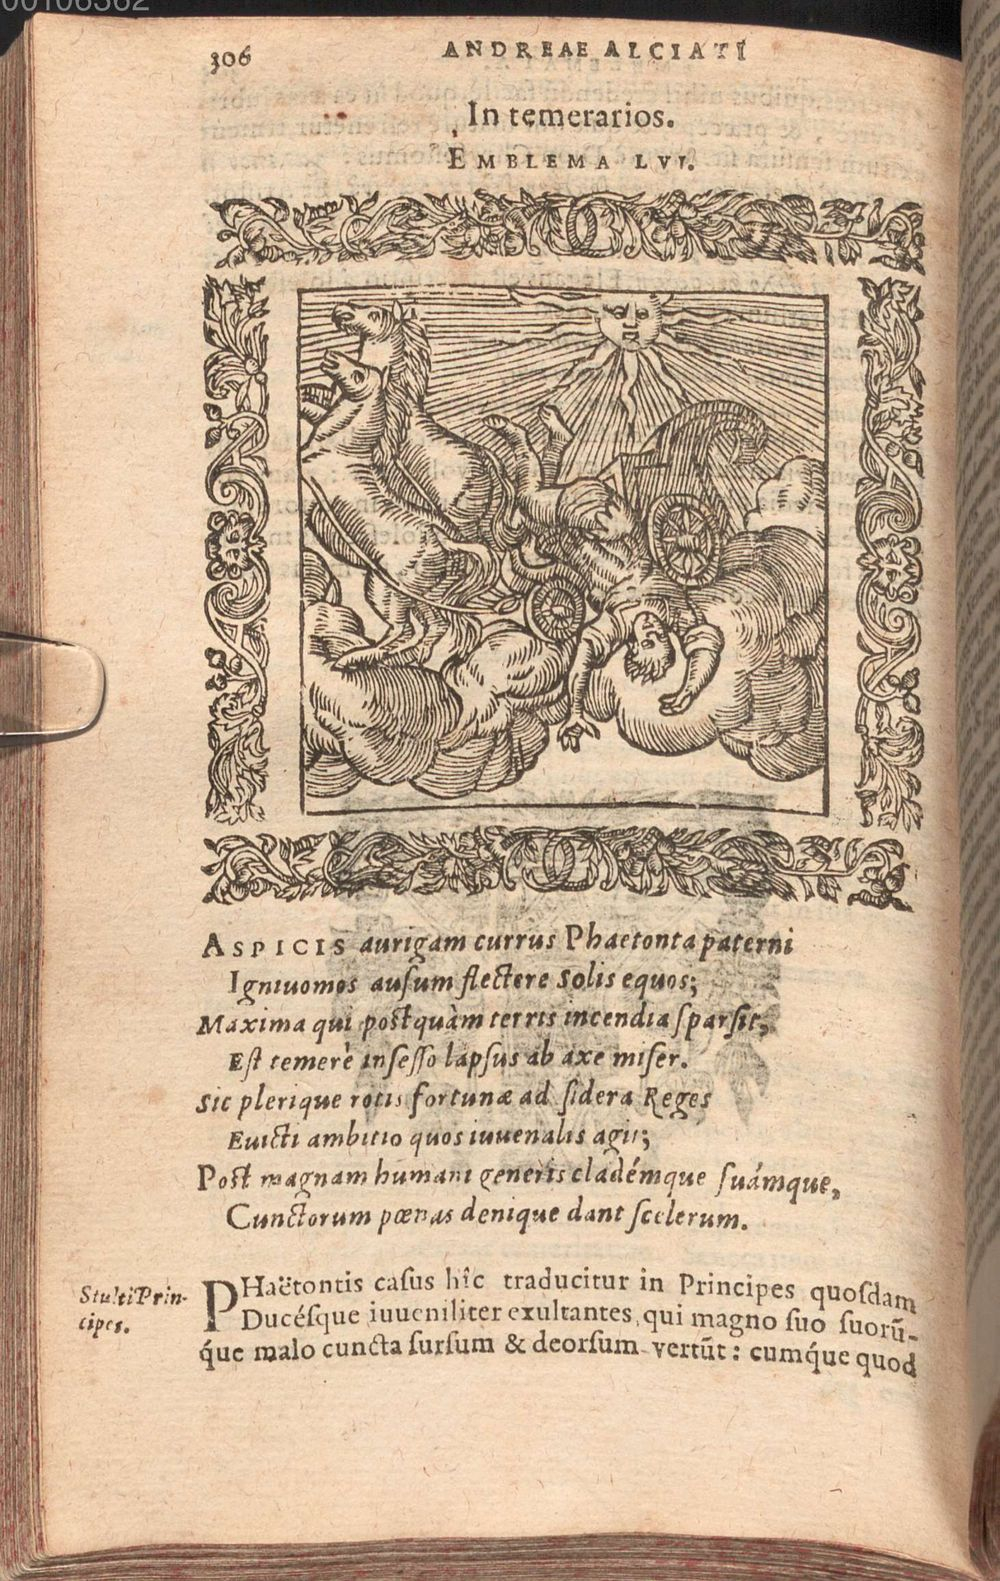 00106362
306
ANDREAE ALCIATI
In temerarios.
EMBLEMA LVI.
ASPICIS aurigam currus Phaetonta paterni
Ignivomos auſum flectere Solis equos;
Maxima qui poſtquàm terris incendia ſparſit,
Eſt temerè inſeſſo lapſus ab axe miſer.
Sic plerique rotis fortunæ ad ſidera Reges
Euicti ambitio quos iuuenalis agit;
Poſt magnam humani generis cladémque ſuámque,
Cunctorum pœnas denique dant ſcelerum.
Stulti Prin-
cipes.
PHaëtontis caſus hîc traducitur in Principes quoſdam
Ducéſque iuueniliter exultantes, qui magno ſuo ſuorū-
q́ue malo cuncta ſurſum & deorſum vertūt: cumq́ue quod